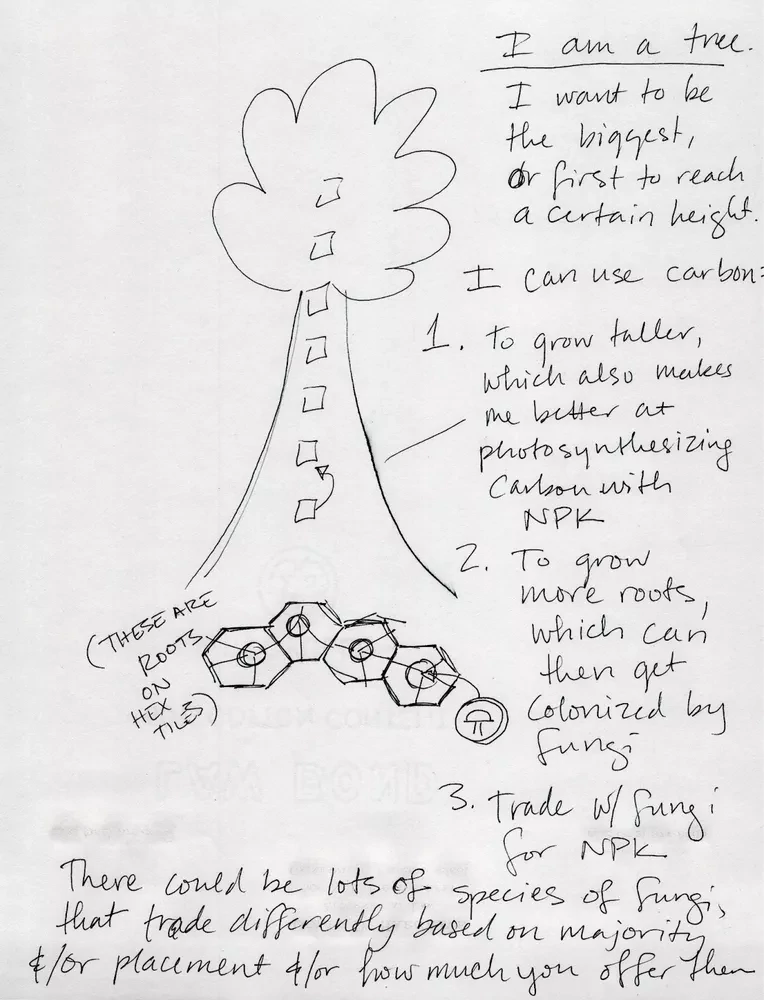 I am a tree.
I want to be
the biggest,
or first to reach
a certain height.
I can use carbon:
1. To grow taller,
which also makes
me better at
photosynthesizing
Carbon with
NPK
2. To grow
more roots,
which can
then get
Colonized by
fungi
(THESE ARE
ROOTS
ON
HEX
TILES)
3. Trade w/ fungi
for NPK
There could be lots of species of fungi,
that trade differently based on majority
&/or placement &/or how much you offer them